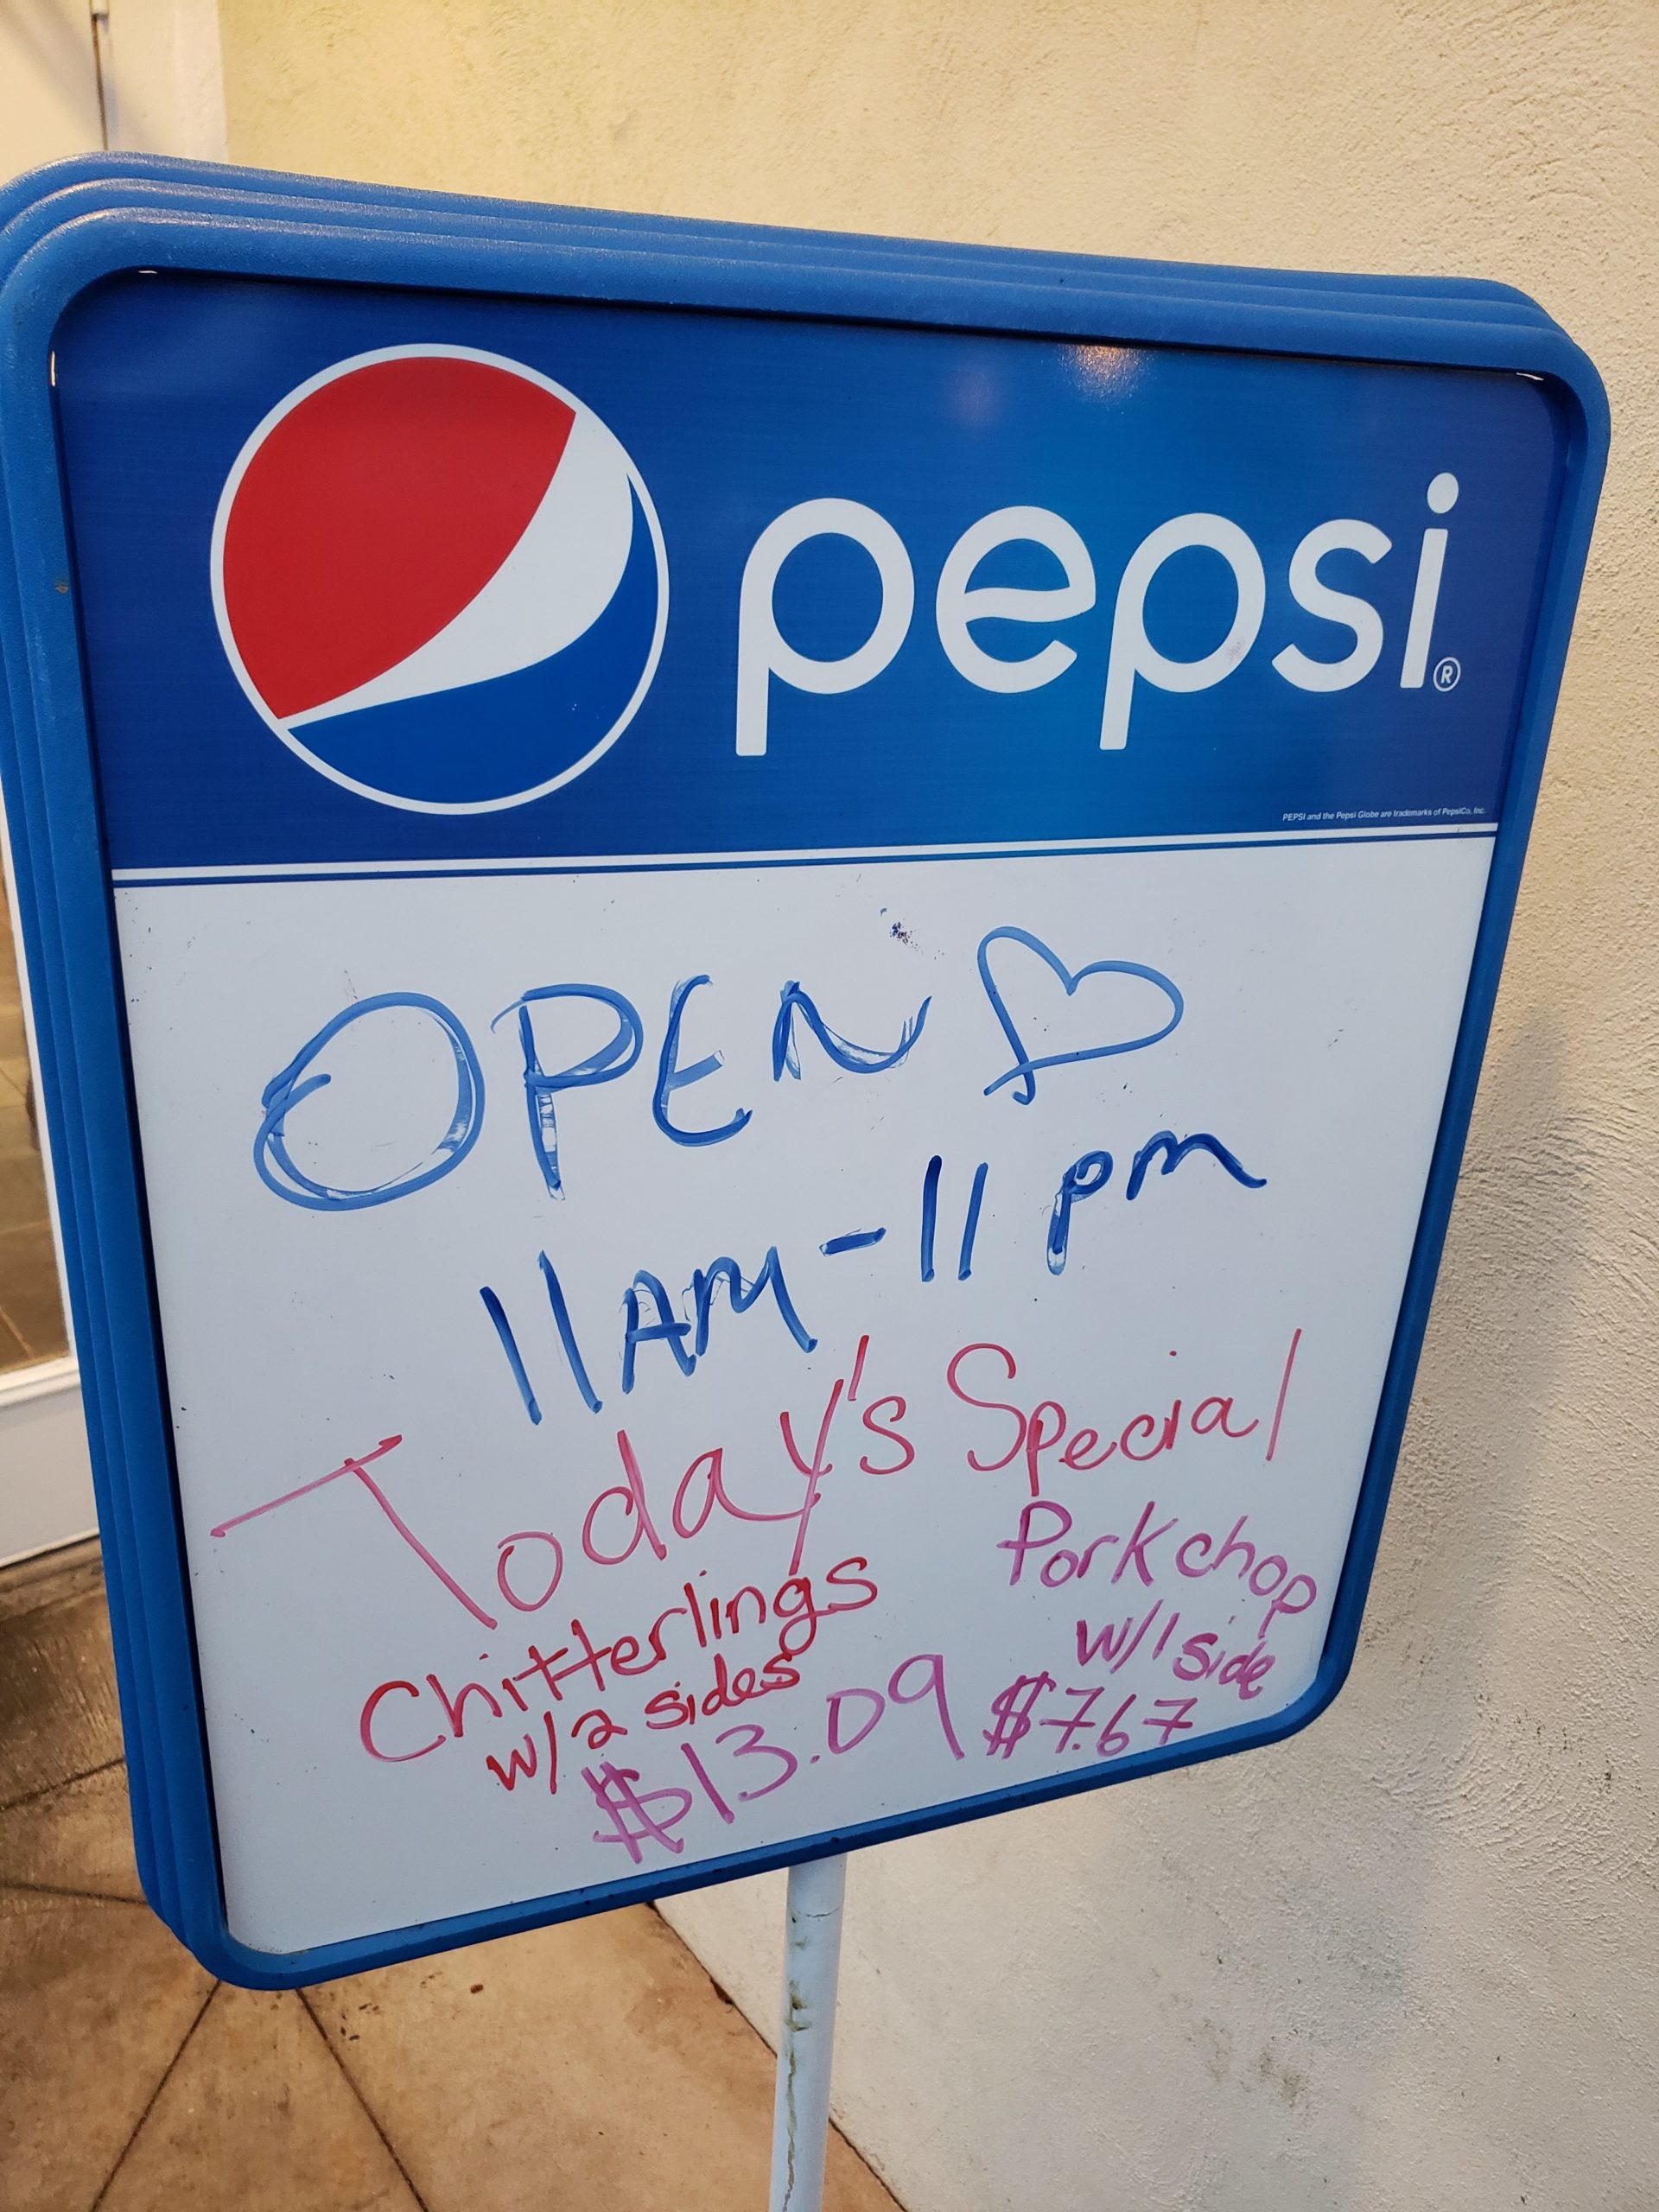 pepsi®
PEPSI and the Pepsi Globe are trademarks of PepsiCo, Inc.
OPEN
11AM-11pm
Today's Special
Chitterlings
w/2 sides
$13.09
Pork chop
w/1 side
$7.67